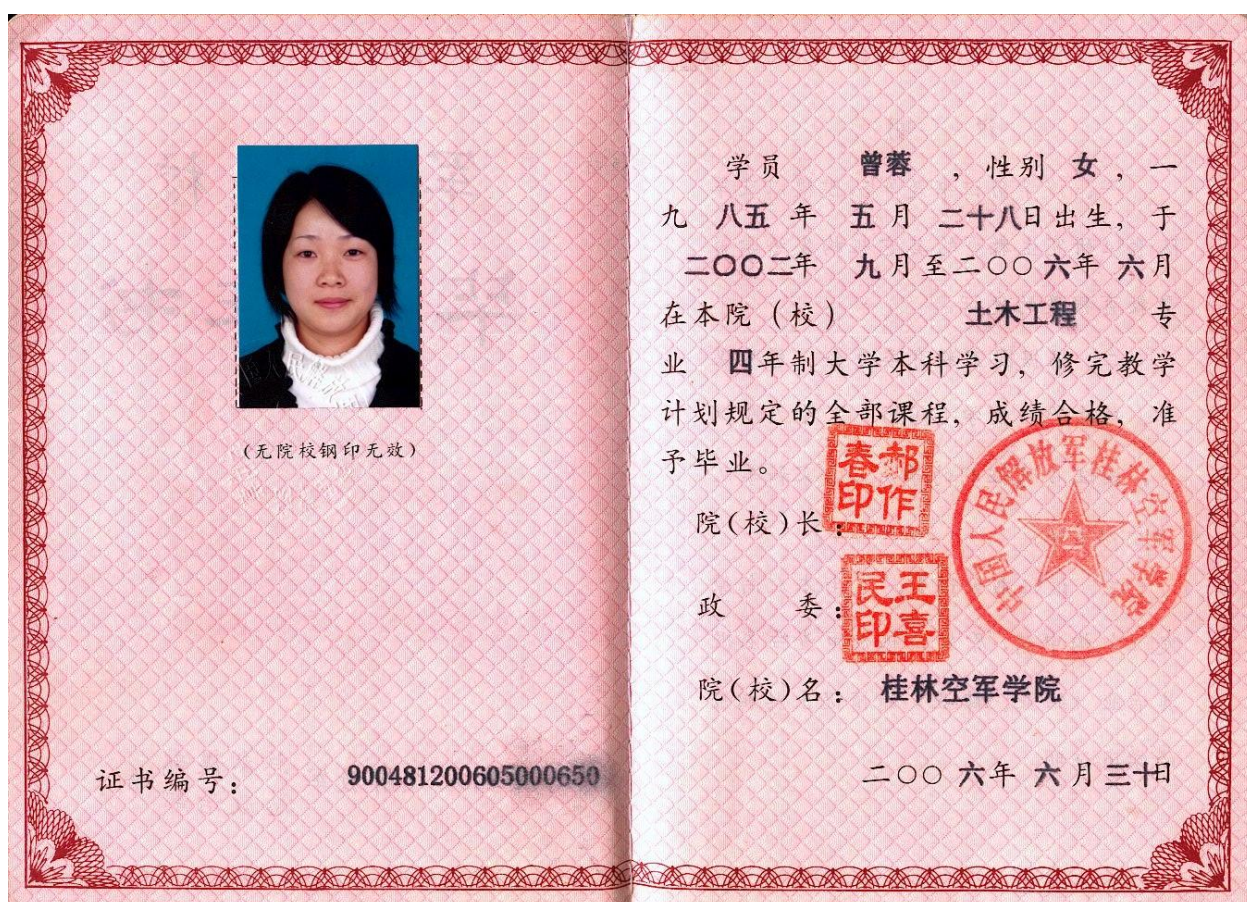 (无院校钢印无效)
证书编号: 900481200605000650
学员 曾蓉 , 性别 女 , 一
九 八五 年 五 月 二十八日出生, 于
二〇〇二年 九月至二〇〇六年 六月
在本院 (校) 土木工程 专
业 四年制大学本科学习, 修完教学
计划规定的全部课程, 成绩合格, 准
予毕业。
院(校)长:
郝作春印
政 委:
王喜民印
中国人民解放军桂林空军学院
院(校)名: 桂林空军学院
二〇〇六年 六月三十日